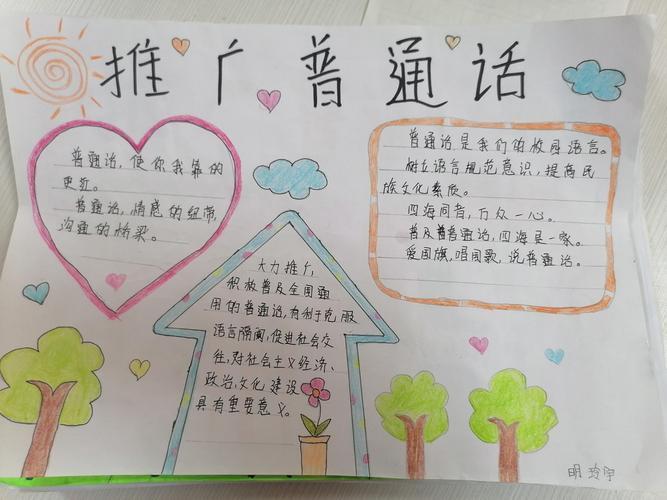 推广普通话
普通话，使你我靠的
更近。
普通话，情感的纽带，
沟通的桥梁。
大力推广，
积极普及全国通
用的普通话，有利于克服
语言隔阂，促进社会交
往，对社会主义经济、
政治，文化建设
具有重要意义。
普通话是我们的校园语言。
树立语言规范意识，提高民
族文化素质。
四海同音，万众一心。
普及普普通话，四海是一家。
爱国旗，唱国歌，说普通话。
明玲宇